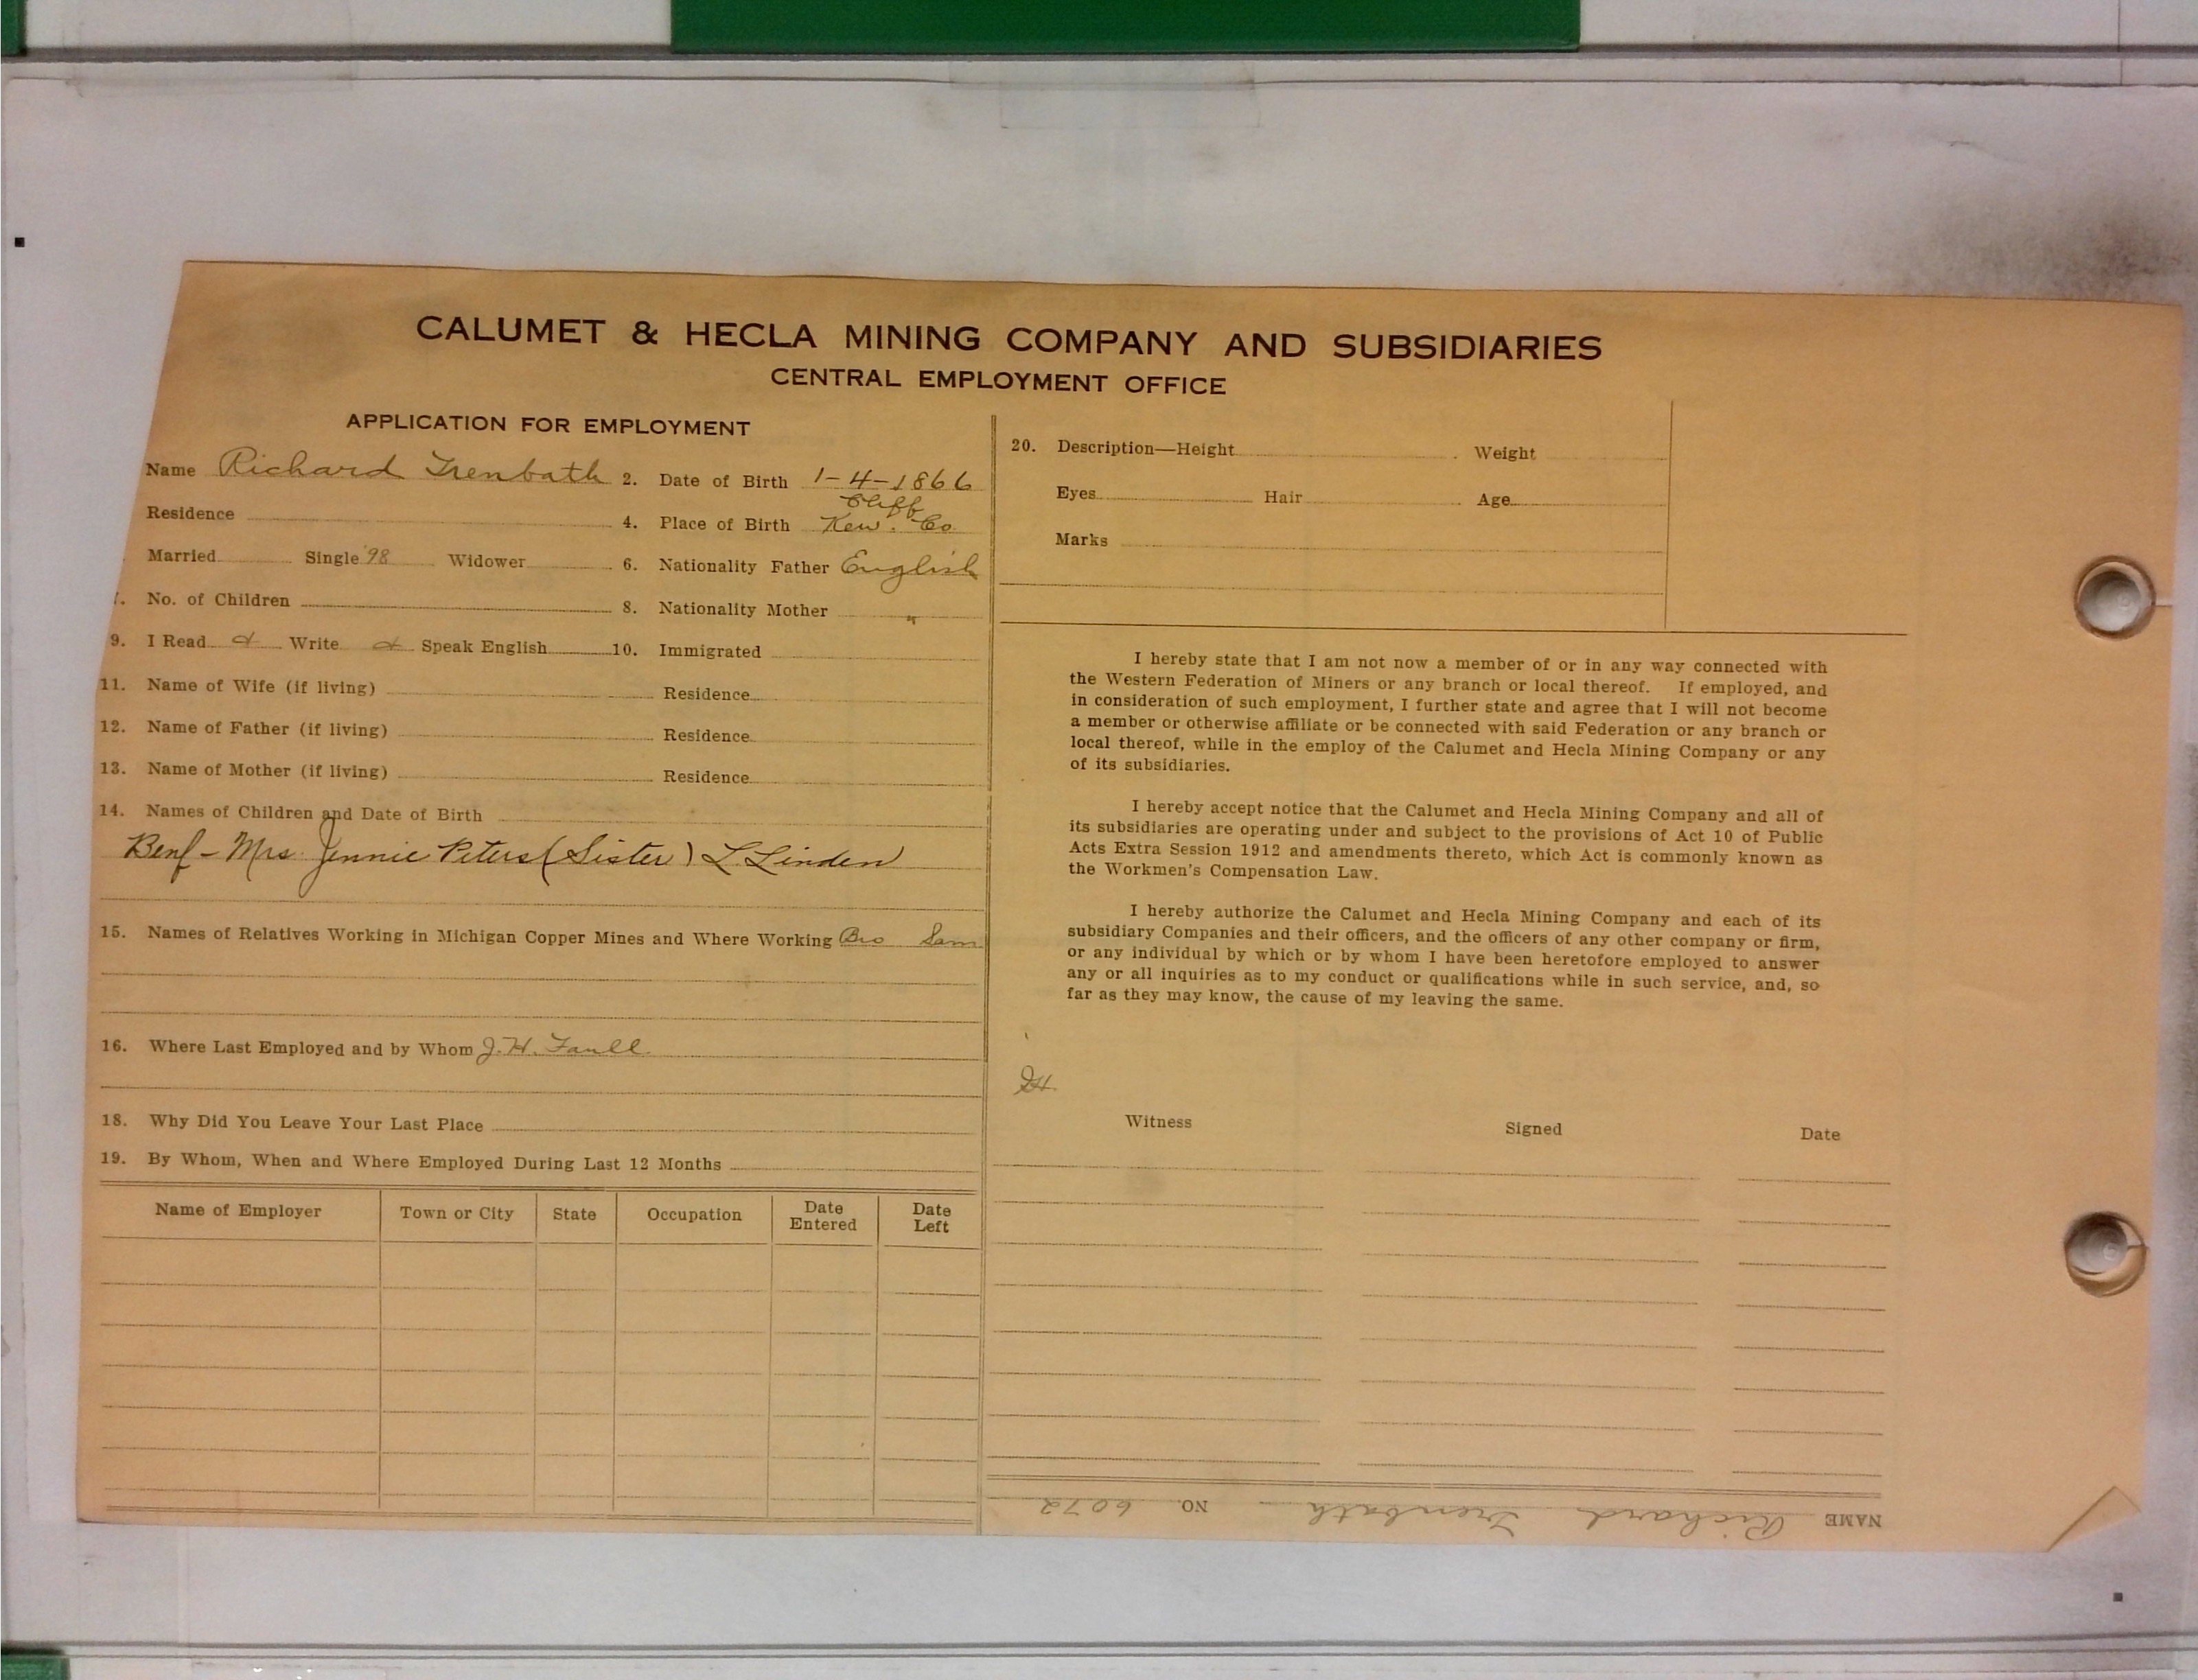 CALUMET & HECLA MINING COMPANY AND SUBSIDIARIES
CENTRAL EMPLOYMENT OFFICE
APPLICATION FOR EMPLOYMENT
Name Richard Trenbath 2. Date of Birth 1-4-1866
Cliff
Residence 4. Place of Birth Kew. Co.
Married Single '98 Widower 6. Nationality Father English
7. No. of Children 8. Nationality Mother "
9. I Read & Write & Speak English 10. Immigrated
11. Name of Wife (if living) Residence
12. Name of Father (if living) Residence
13. Name of Mother (if living) Residence
14. Names of Children and Date of Birth
Benf - Mrs. Jennie Peters (Sister) L. Linden
15. Names of Relatives Working in Michigan Copper Mines and Where Working Bro Sam
16. Where Last Employed and by Whom J. H. Faull
18. Why Did You Leave Your Last Place
19. By Whom, When and Where Employed During Last 12 Months
Name of Employer Town or City State Occupation Date Entered Date Left
20. Description—Height Weight
Eyes Hair Age
Marks
I hereby state that I am not now a member of or in any way connected with
the Western Federation of Miners or any branch or local thereof. If employed, and
in consideration of such employment, I further state and agree that I will not become
a member or otherwise affiliate or be connected with said Federation or any branch or
local thereof, while in the employ of the Calumet and Hecla Mining Company or any
of its subsidiaries.
I hereby accept notice that the Calumet and Hecla Mining Company and all of
its subsidiaries are operating under and subject to the provisions of Act 10 of Public
Acts Extra Session 1912 and amendments thereto, which Act is commonly known as
the Workmen's Compensation Law.
I hereby authorize the Calumet and Hecla Mining Company and each of its
subsidiary Companies and their officers, and the officers of any other company or firm,
or any individual by which or by whom I have been heretofore employed to answer
any or all inquiries as to my conduct or qualifications while in such service, and, so
far as they may know, the cause of my leaving the same.
Witness Signed Date
NAME Richard Trenbath NO. 6072